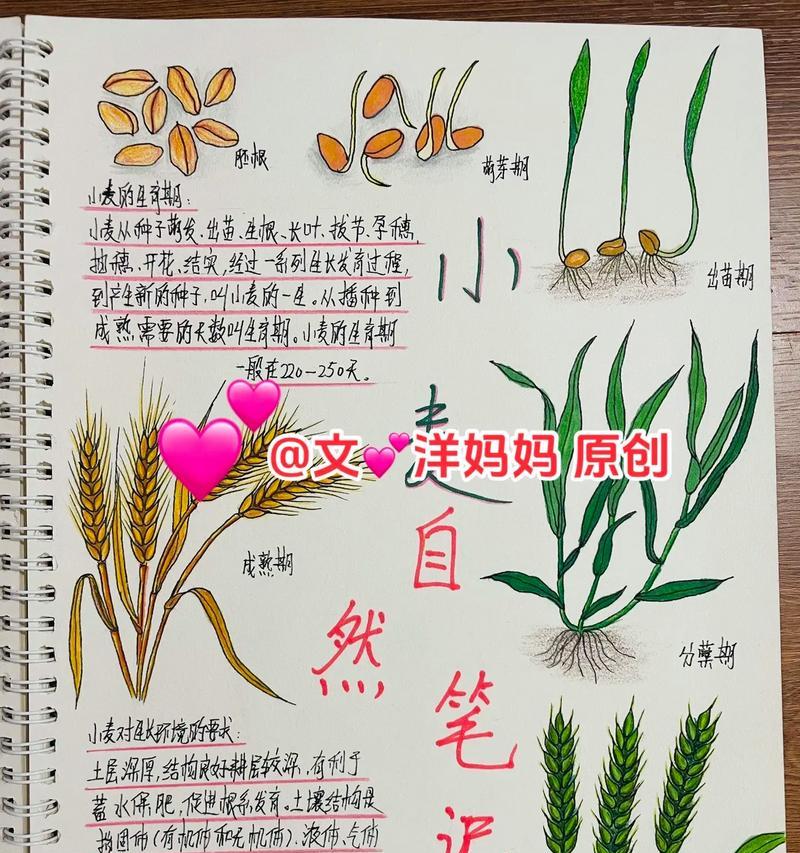 胚根
萌芽期
出苗期
小麦的生育期：
小麦从种子萌发、出苗、生根、长叶、拔节、孕穗，
抽穗、开花、结实，经过一系列生长发育过程，
到产生新的种子，叫小麦的一生。从播种到
成熟需要的天数叫生育期。小麦的生育期
一般在220—250天。
小
麦
自
然
笔
记
@文💕洋妈妈 原创
成熟期
分蘖期
小麦对生长环境的要求：
土层深厚，结构良好耕层较深，有利于
蓄水保肥，促进根系发育。土壤结构是
指固体（有机体和无机体）、液体、气体